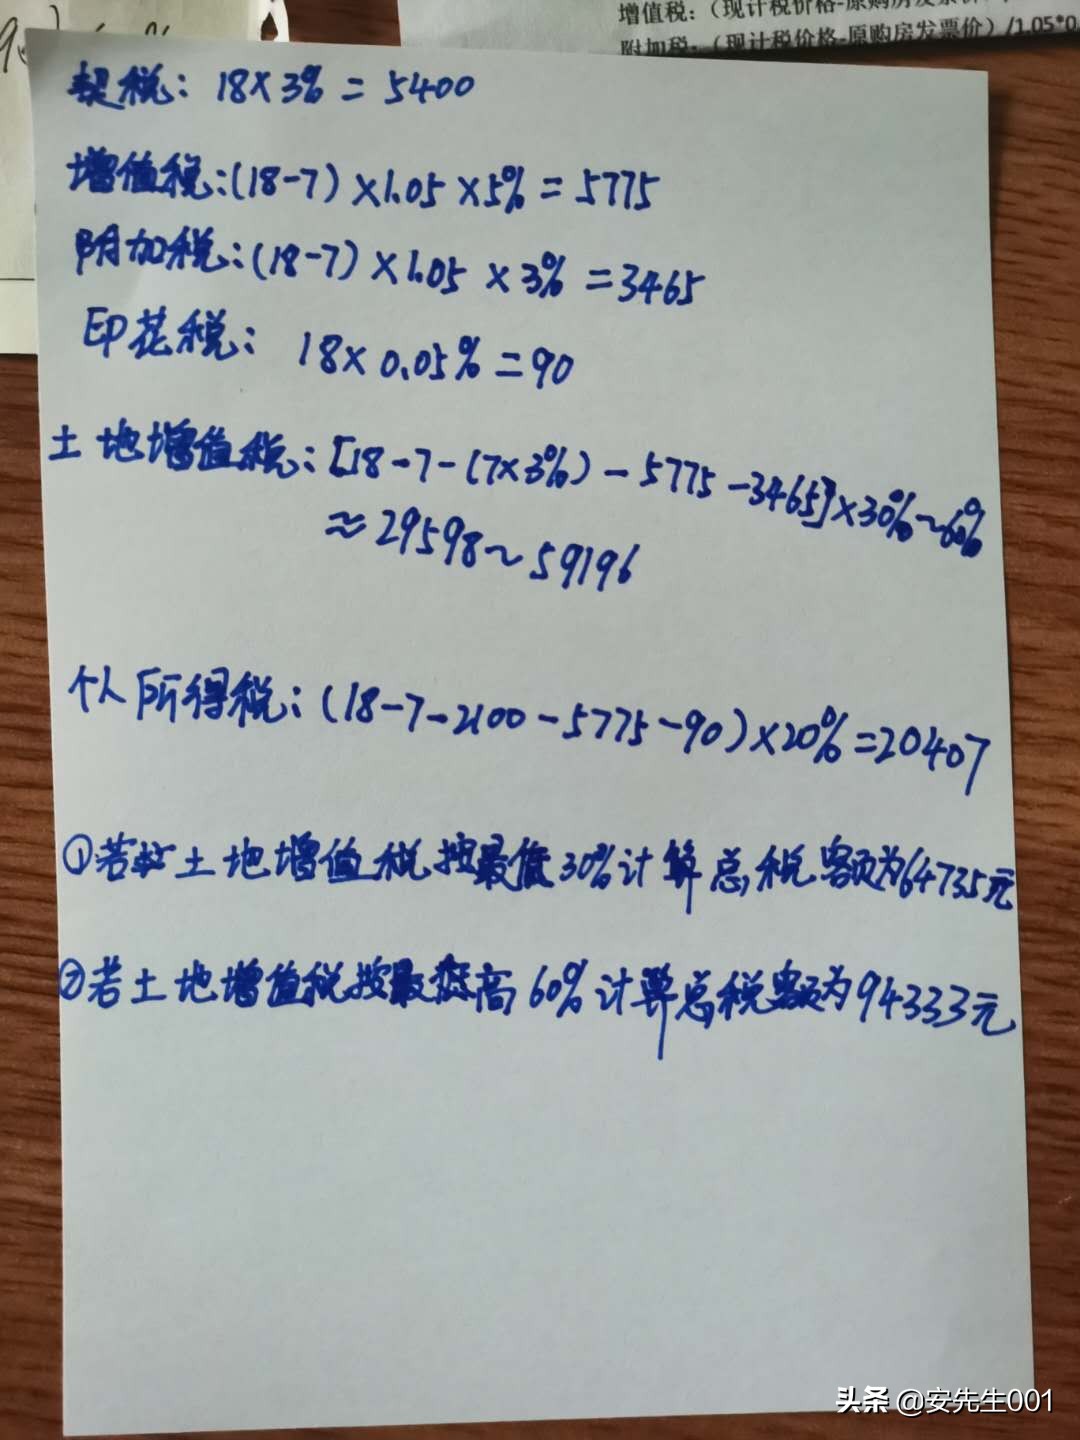 增值税：（现计税价格-原购房发票
附加税：（现计税价格-原购房发票价）/1.05*0.
契税：18×3%=5400
增值税:(18-7)×1.05×5%=5775
附加税:(18-7)×1.05×3%=3465
印花税：18×0.05%=90
土地增值税:[18-7-(7×3%)-5775-3465]×30%~60%
≈29598~59196
个人所得税:(18-7-2100-5775-90)×20%=20407
①若按土地增值税按最低30%计算总税额为64735元
②若土地增值税按最高60%计算总税额为94333元
头条 @安先生001